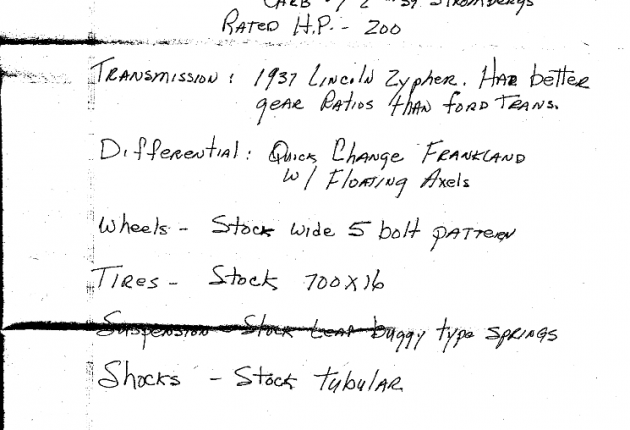 CARB - / 2 - 59 STROMBERGS
RATED H.P. - 200
TRANSMISSION : 1937 LINCOLN Zypher. HAD better
gear RATIOS than FORD TRANS.
Differential : Quick Change FRANKLAND
W/ FLOATING Axels
Wheels - Stock wide 5 bolt PATTERN
TIRES - Stock 700X16
Suspension - Stock LEAF buggy type SPRINGS
Shocks - Stock tubular